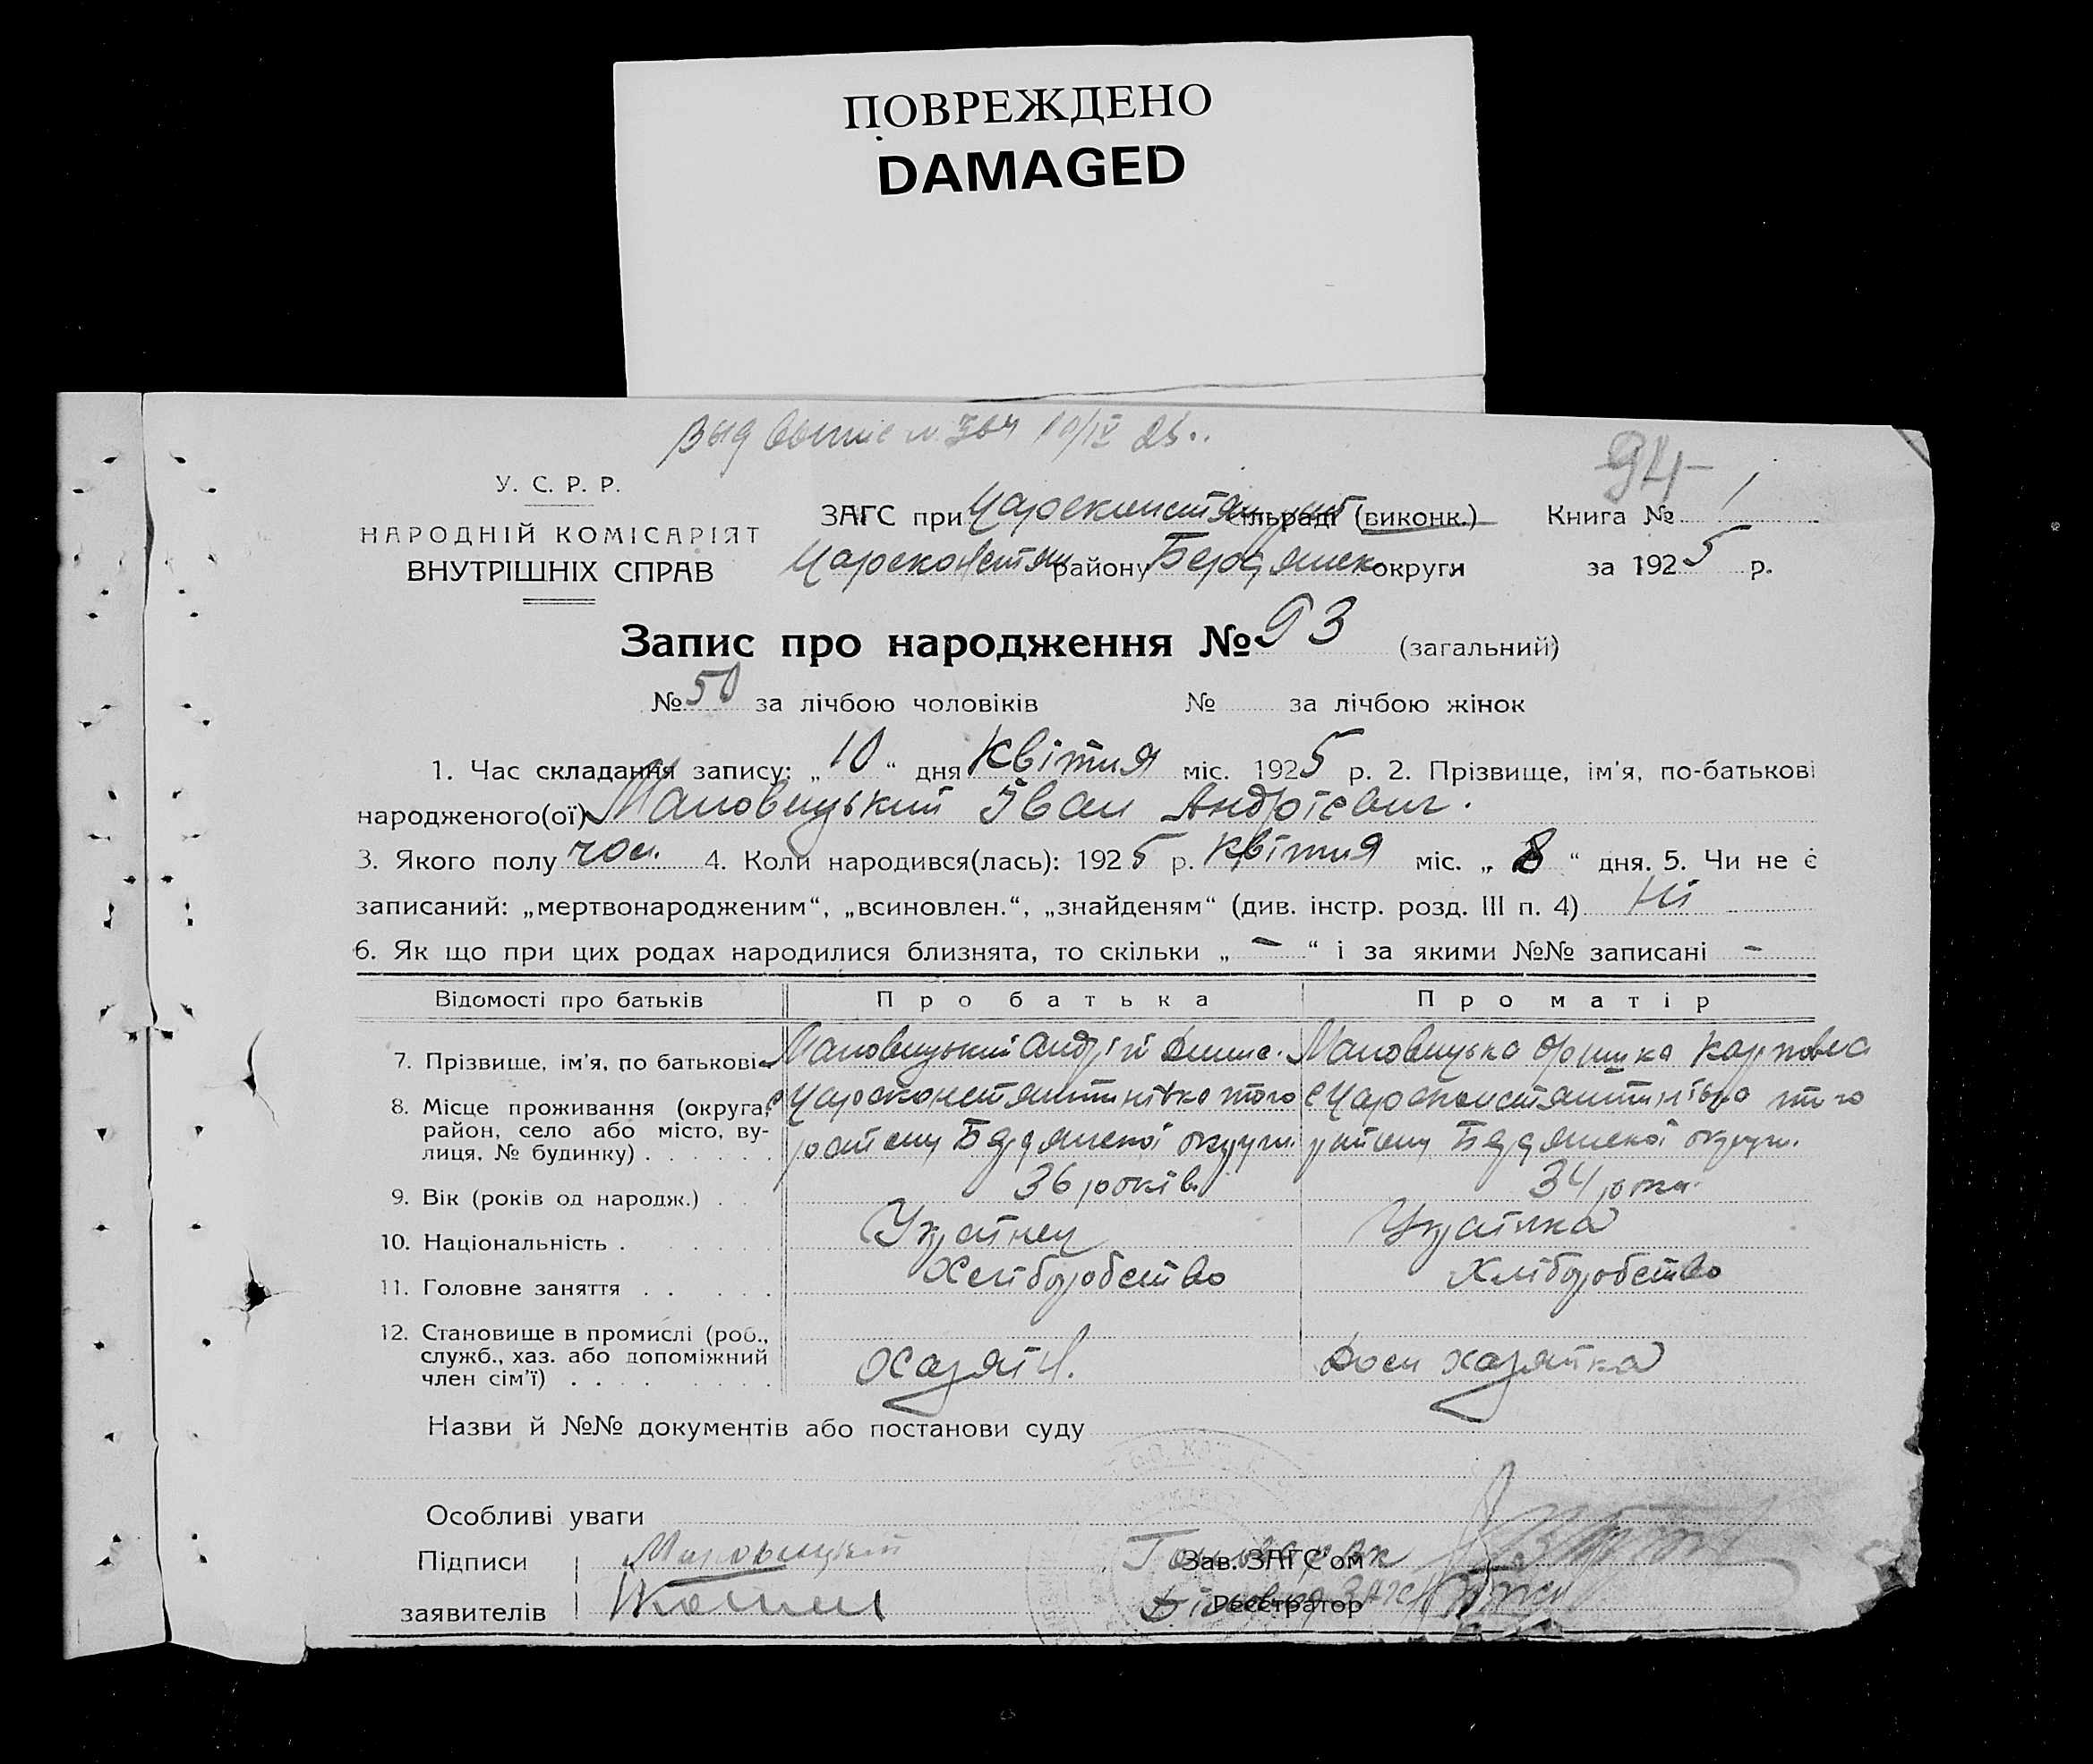 ПОВРЕЖДЕНО
DAMAGED
10/IV 25..
94
У. С. Р. Р.
НАРОДНІЙ КОМІСАРІЯТ
ВНУТРІШНІХ СПРАВ
ЗАГС при Царекшстян сільраді (виконк.) Книга № 1
Цареконстян району Бердянськ округи за 1925 р.
Запис про народження № 93 (загальний)
№ 50 за лічбою чоловіків № за лічбою жінок
1. Час складання запису: „10“ дня Квітня міс. 1925 р. 2. Прізвище, ім'я, по-батькові
народженого(ої) Маловицький Іван Андрієвич.
3. Якого полу чол. 4. Коли народився(лась): 1925 р. Квітня міс. „8“ дня. 5. Чи не є
записаний: „мертвонародженим“, „всиновлен.“, „знайденям“ (див. інстр. розд. III п. 4) Ні
6. Як що при цих родах народилися близнята, то скільки „ – “ і за якими №№ записані –
Відомості про батьків Про батька Про матір
7. Прізвище, ім'я, по батькові Маловицький Андрій Денис. Маловицька Оришка Карповна
8. Місце проживання (округа, район, село або місто, вулиця, № будинку) с Цареконстянтинівка того с Цареконстянтинівка того
району Бердянської округи. району Бердянської округи.
9. Вік (років од народж.) 36 років. 34 роки.
10. Національність Українец Українка
11. Головне заняття Хліборобство Хліборобство
12. Становище в промислі (роб., служб., хаз. або допоміжний член сім'ї) Хазяїн. Дом хазяйка
Назви й №№ документів або постанови суду
Особливі уваги
Підписи Маловицкий Зав. ЗАГС'ом
заявителів Реєстратор